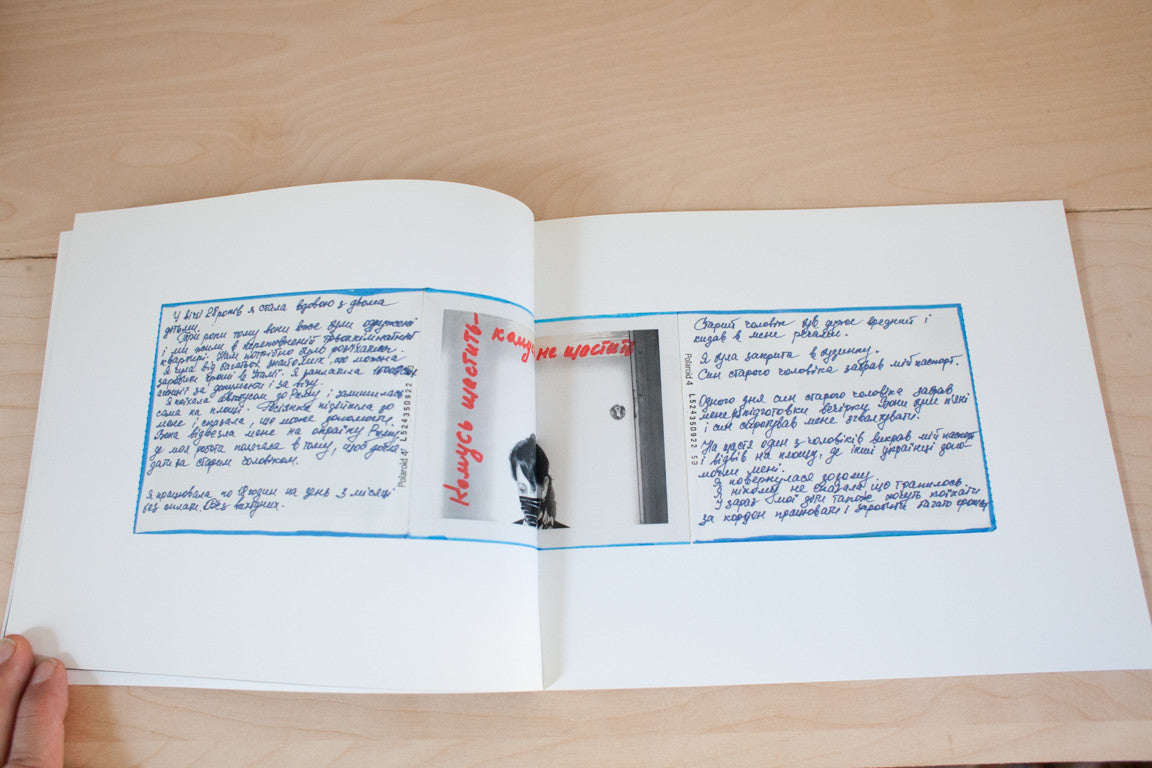 У віці 28 років я стала вдовою з двома
дітьми.
Три роки тому вони вже були одружені
і ми жили в переповненій двокімнатній
квартирі. Нам потрібно було роз'їхатися.
Я чула від багатьох знайомих, що можна
заробити гроші в Італії. Я заплатила
агенції за документи і за візу.
Я поїхала автобусом до Риму і залишилась
сама на площі. підійшла до
мене і сказала, що може допомогти.
Вона відвезла мене на окраїну Риму,
де моя робота полягала в тому, щоб догля-
дати за старим чоловіком.
Я працювала по 18 годин на день 3 місяці
без оплати і без вихідних.
Polaroid 4 L524350922
Комусь щастить-
комусь не щастить
Polaroid 4 L524350922 50
Старий чоловік був дуже вредний і
кидав в мене речами.
Я була закрита в будинку.
Син старого чоловіка забрав мій паспорт.
Одного дня син старого чоловіка забрав
мене підготовки вечірки. Вони були п'яні
і син спробував мене зґвалтувати.
На щастя один з чоловіків викрав мій паспорт
і відвіз на площу, де інші українці допо-
могли мені.
Я повернулася додому.
Я нікому не сказала що трапилось.
І зараз мої діти також хочуть поїхати
за кордон працювати і заробити багато грошей